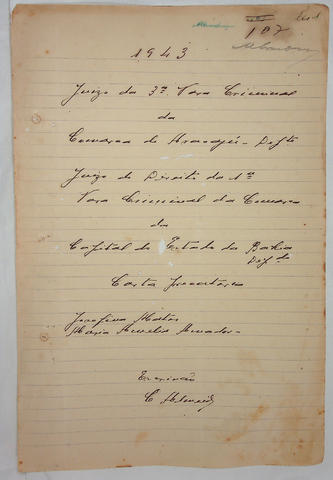 107
1943
Juizo da 3ª Vara Criminal
da
Comarca de Aracajú - Dpte
Juizo de Direito da 1ª
Vara Criminal da Comarca
da
Capital do Estado da Bahia
Dpdo
Carta Precatória
Josefina Mattos
Maria Aurelia Amador -
Escrivão
C Almeida